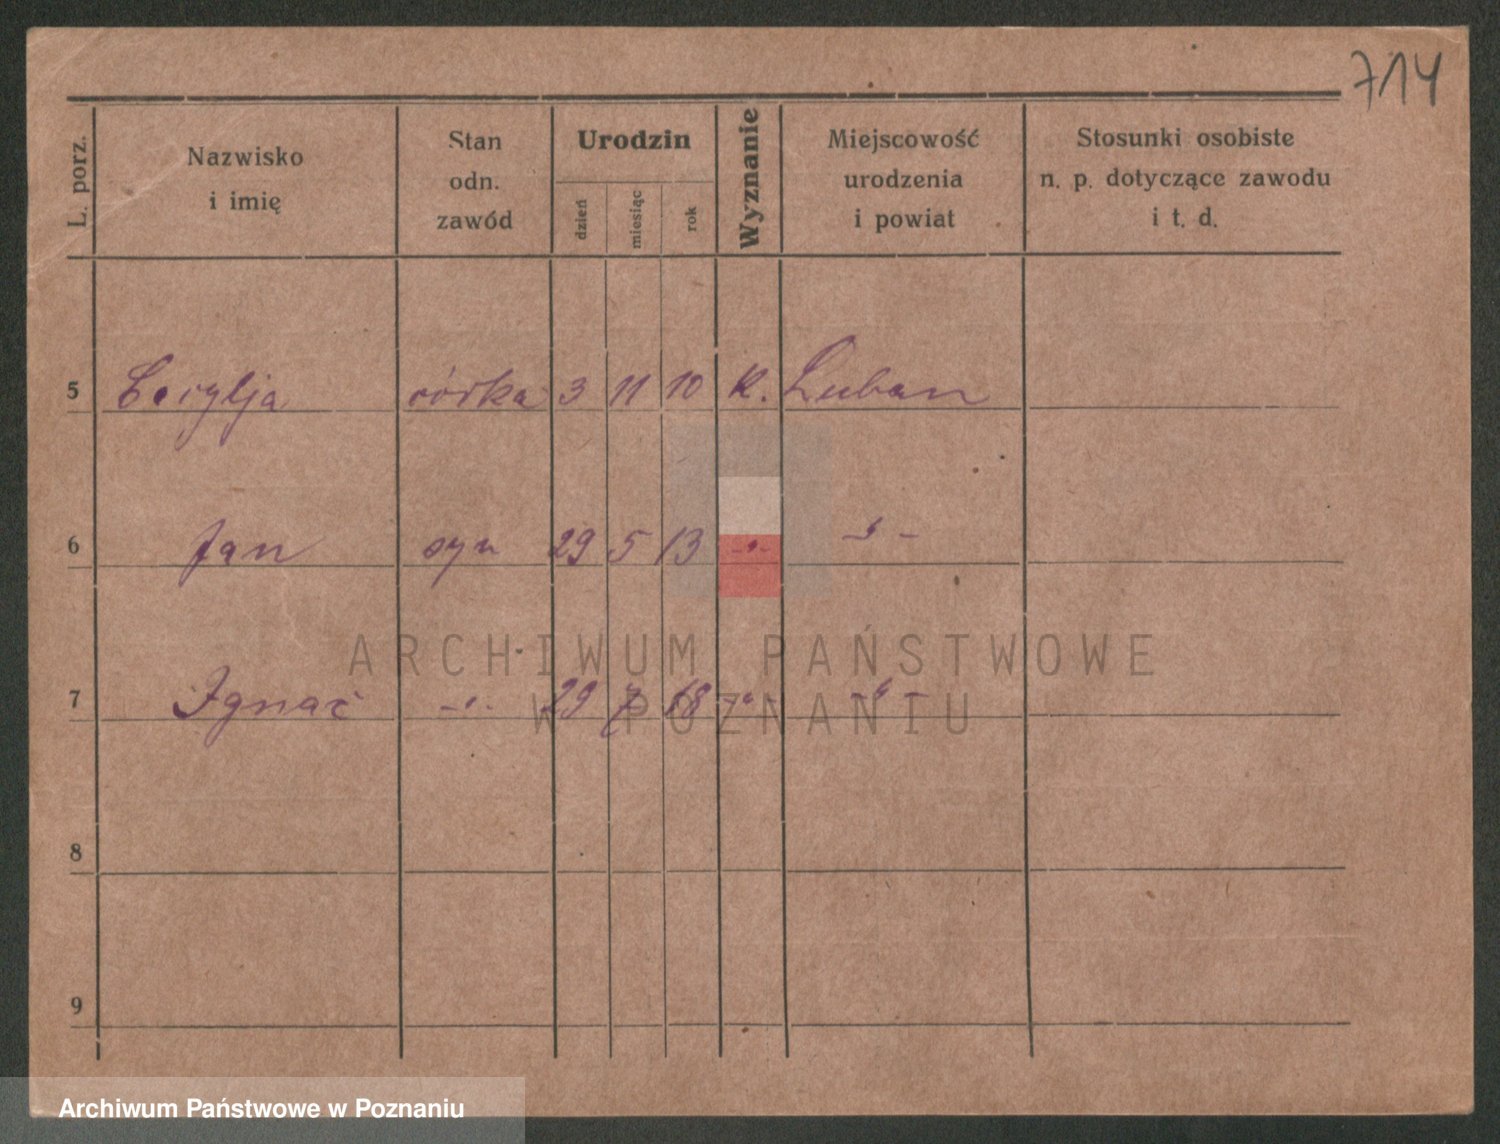 714
L. porz. Nazwisko i imię Stan odn. zawód Urodzin dzień miesiąc rok Wyznanie Miejscowość urodzenia i powiat Stosunki osobiste n. p. dotyczące zawodu i t. d.
5 Cecylja córka 3 11 10 K. Luban
6 Jan syn 29 5 13 -"- -"-
ARCHIWUM PAŃSTWOWE
7 Ignac -"- 29 7 18 -"- -"-
W POZNANIU
8
9
Archiwum Państwowe w Poznaniu